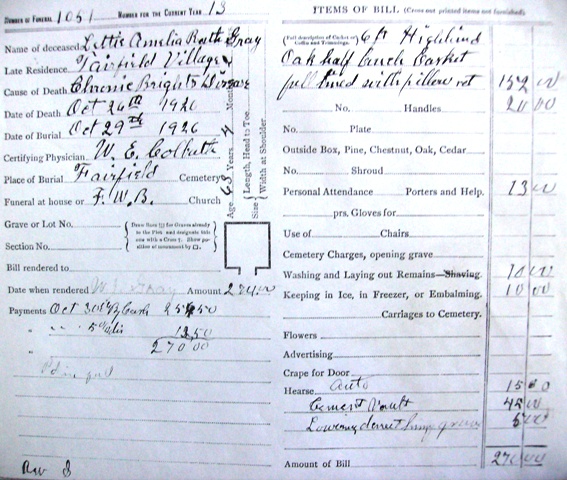 NUMBER OF FUNERAL 1051 NUMBER FOR THE CURRENT YEAR 13
Name of deceased Lettie Amelia Gray
Late Residence Fairfield Village
Cause of Death Chronic Brights Disease
Date of Death Oct 26th 1926
Date of Burial Oct 29th 1926
Certifying Physician W. E. Colbath
Place of Burial Fairfield Cemetery
Funeral at house or F. W. B. Church
Age 63 Years 4 Mon
Size Length, Head to Toe.
Width at Shoulder
Grave or Lot No.
Section No.
Draw More (?) for Graves already
to the Plot and designate this
one with a Cross †. Show po-
sition of monument by □.
Bill rendered to
Date when rendered Gray Amount
Payments Oct 30 By Cash 50
" 5% dis 13.50
" 270 00
Pd in full
ITEMS OF BILL (Cross out printed items not furnished)
(Full description of Casket or Coffin and Trimmings.) 6 ft Highland
Oak half couch Casket
full lined with pillow
No. Handles 20 00
No. Plate
Outside Box, Pine, Chestnut, Oak, Cedar
No. Shroud
Personal Attendance Porters and Help. 13 00
prs. Gloves for
Use of Chairs
Cemetery Charges, opening grave
Washing and Laying out Remains—Shaving. 10 00
Keeping in Ice, in Freezer, or Embalming. 10 00
Carriages to Cemetery.
Flowers
Advertising
Crape for Door
Hearse Auto 15 00
Cement Vault 45 00
Lowering 5 00
Amount of Bill 270 00